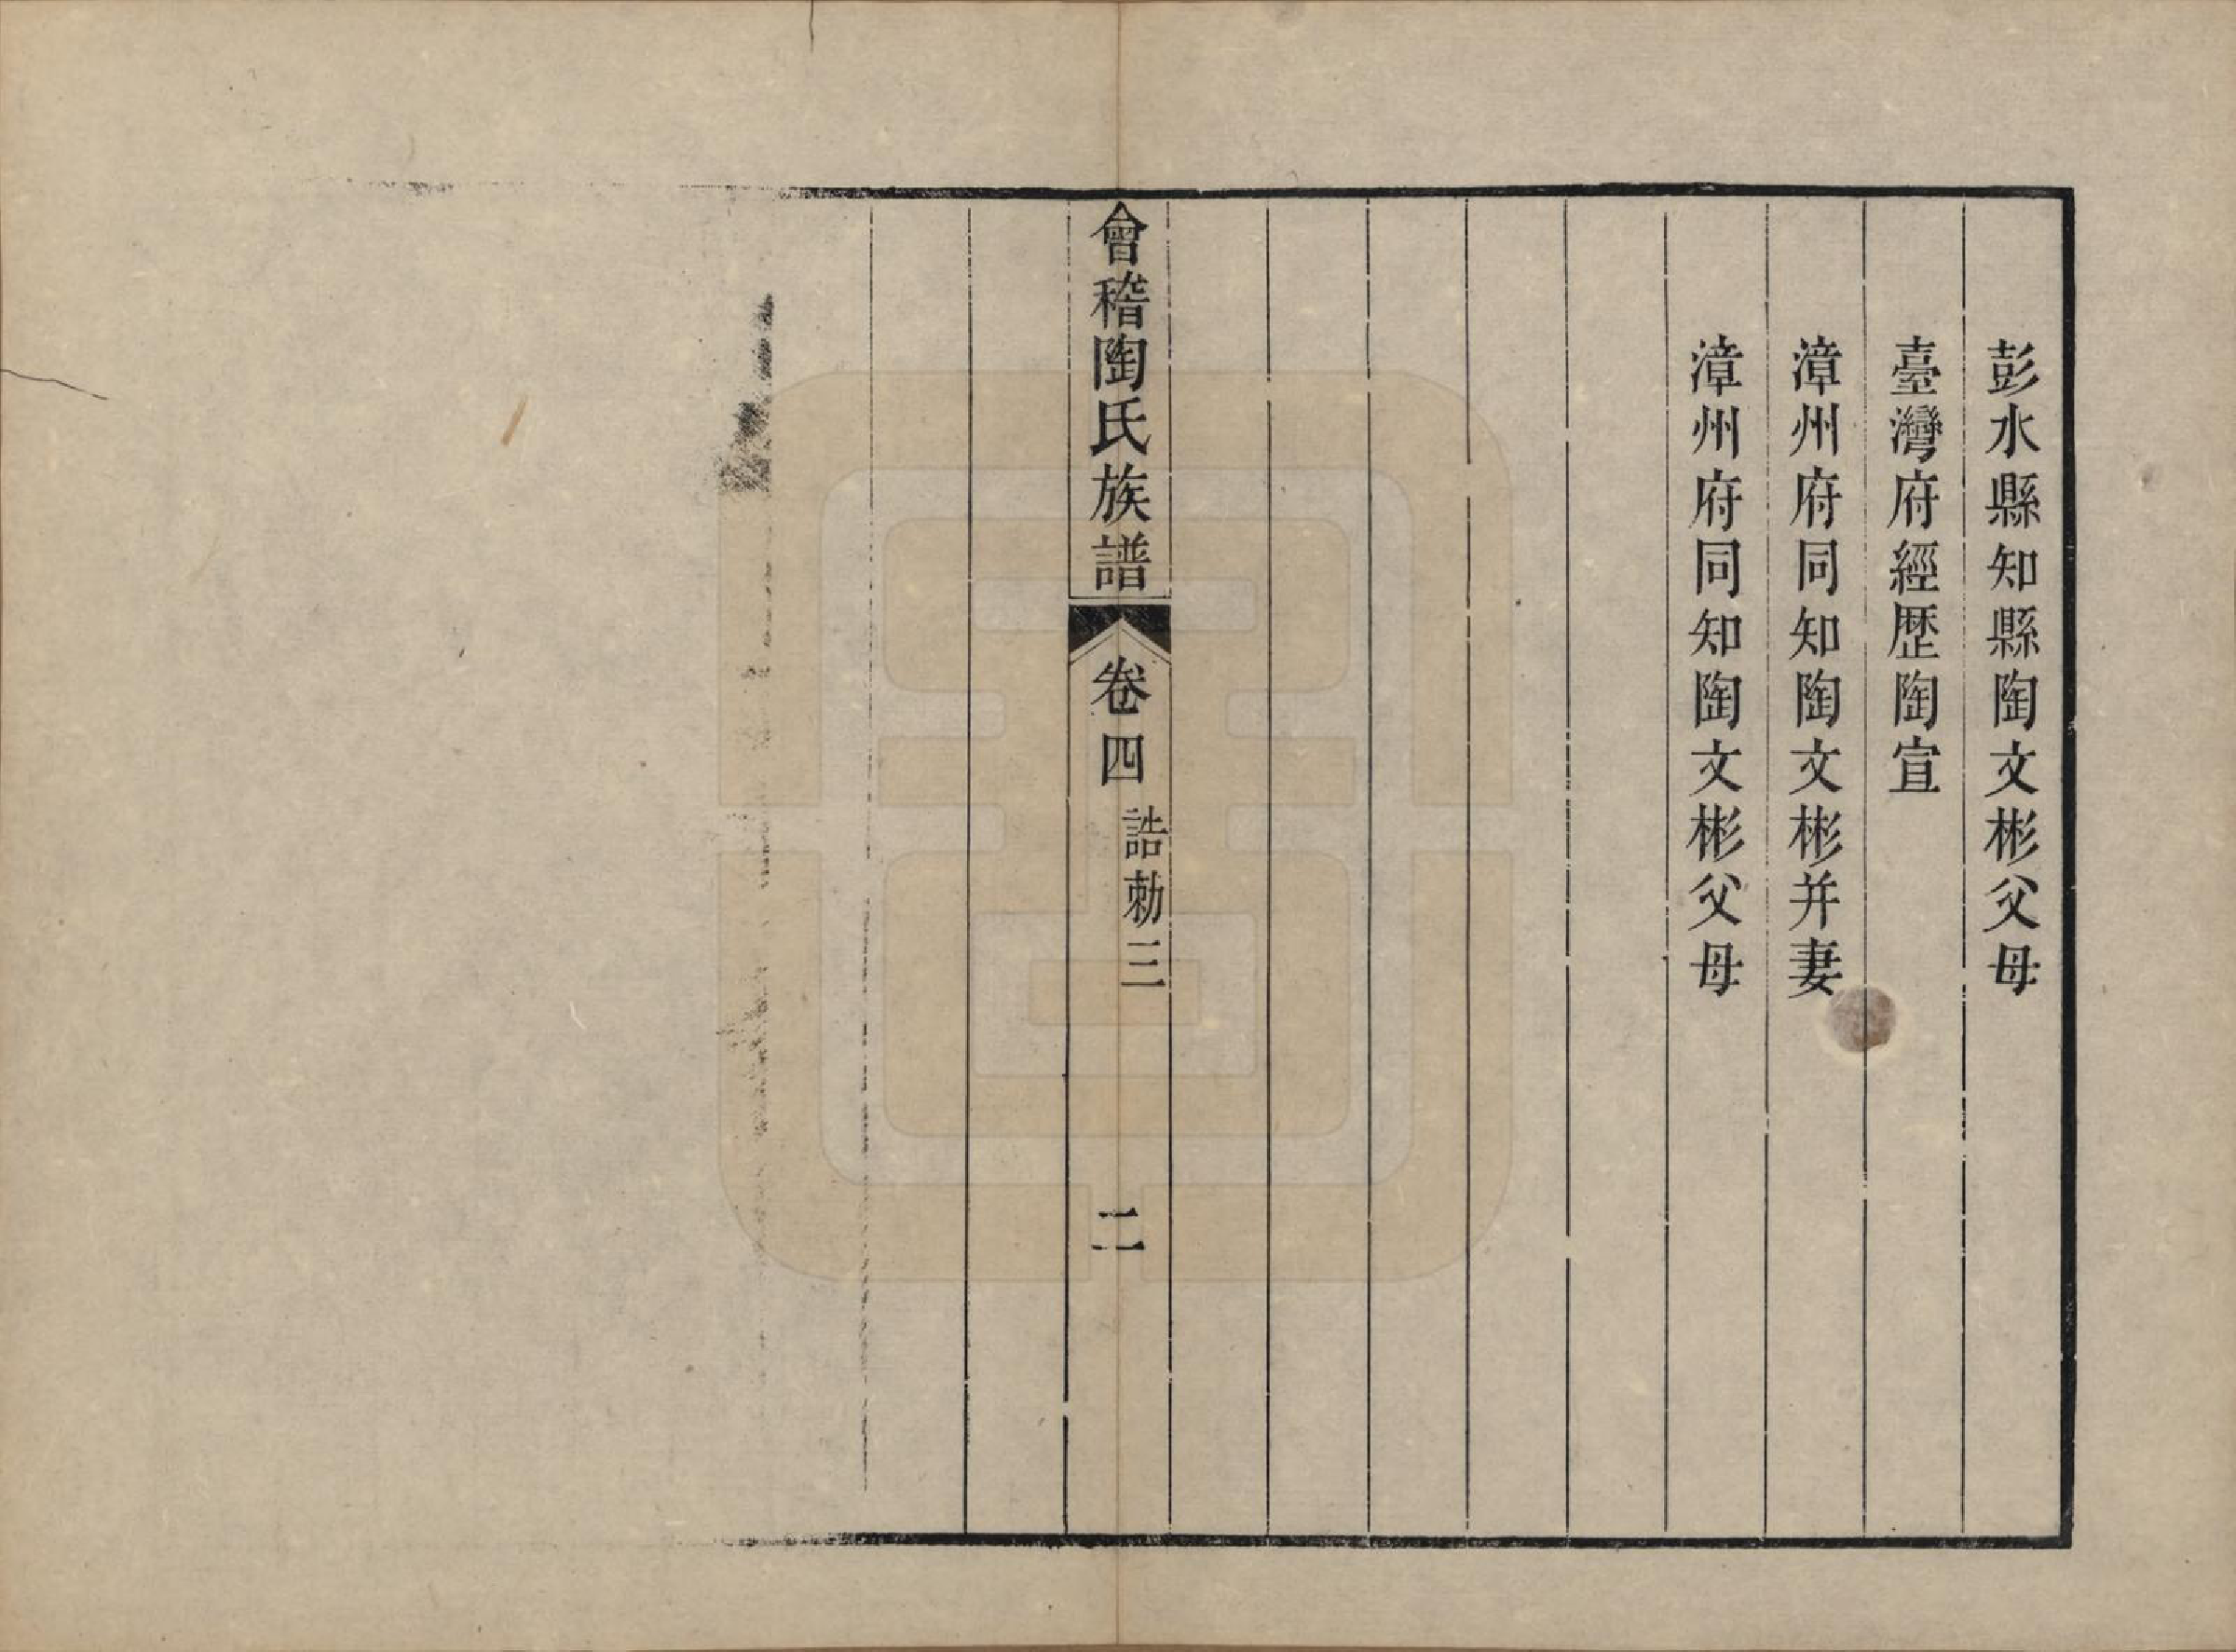 彭水縣知縣陶文彬父母
臺灣府經歷陶宣
漳州府同知陶文彬并妻
漳州府同知陶文彬父母
會稽陶氏族譜
卷四
誥勅三
二